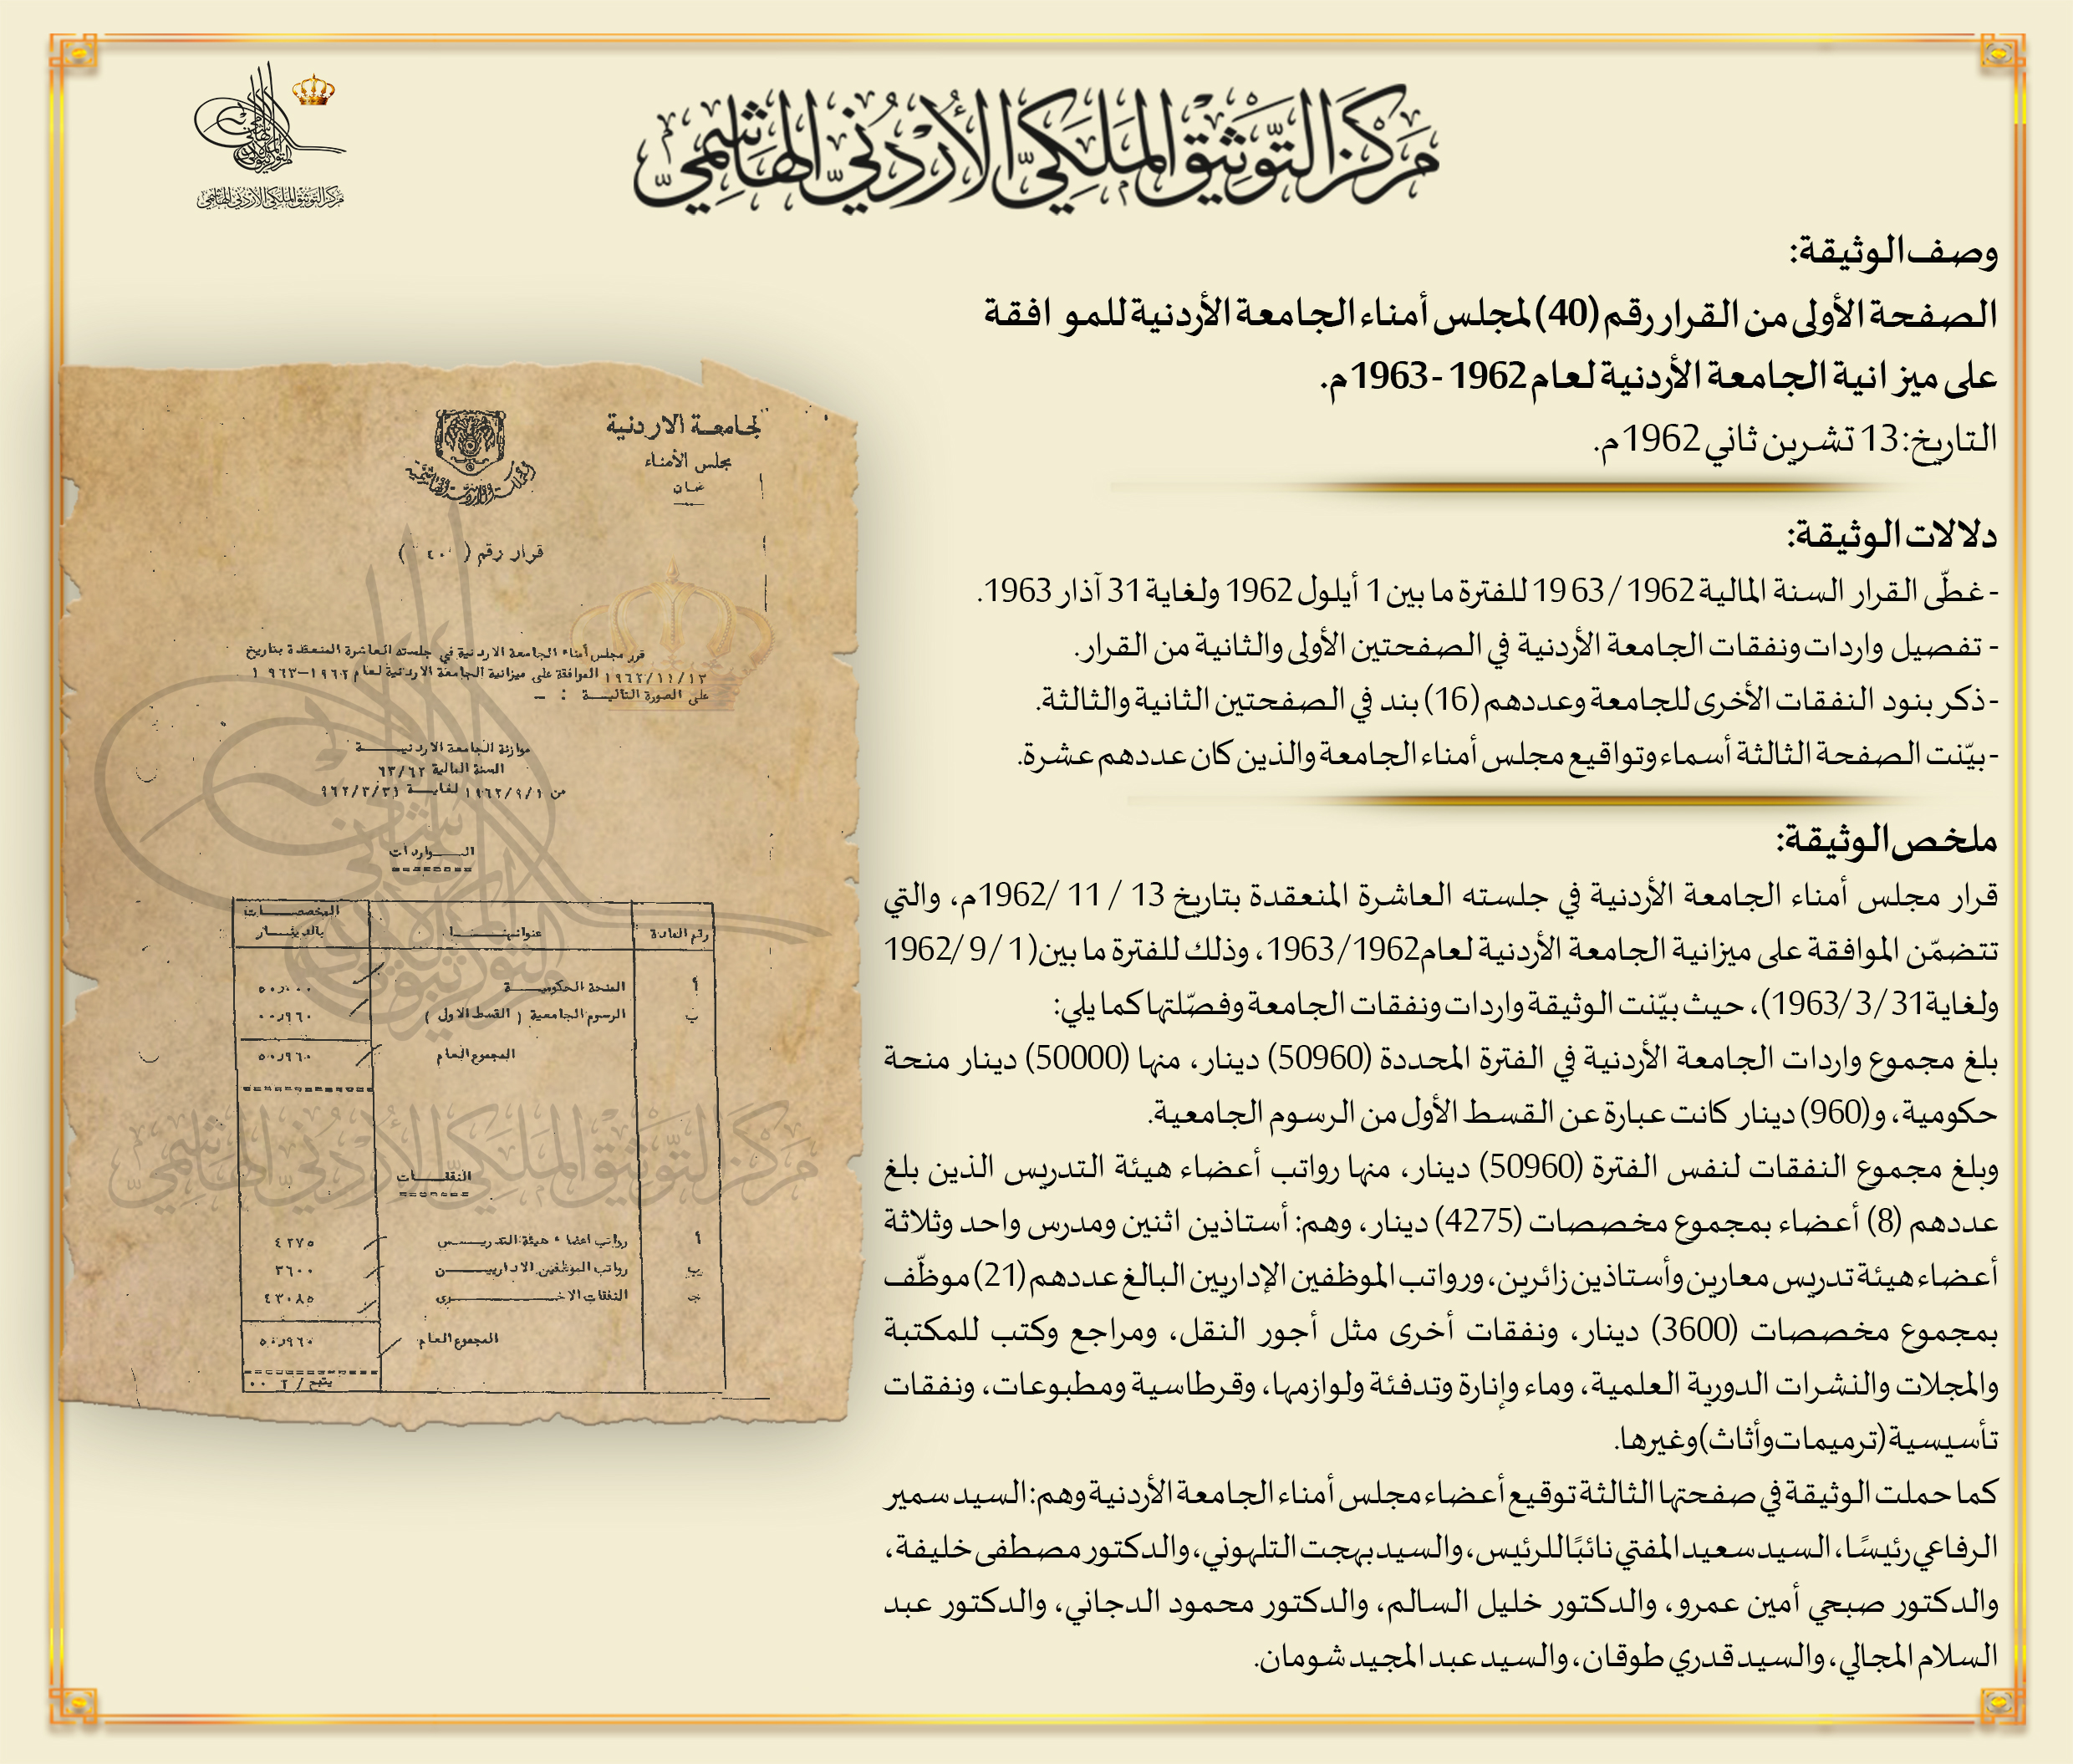 مركز التوثيق الملكي الأردني الهاشمي
مركز التوثيق الملكي الأردني الهاشمي
وصف الوثيقة:
الصفحة الأولى من القرار رقم (40) لمجلس أمناء الجامعة الأردنية للموافقة
على ميزانية الجامعة الأردنية لعام 1962 - 1963م.
التاريخ: 13 تشرين ثاني 1962م.
دلالات الوثيقة:
- غطّى القرار السنة المالية 1962 / 1963 للفترة ما بين 1 أيلول 1962 ولغاية 31 آذار 1963.
- تفصيل واردات ونفقات الجامعة الأردنية في الصفحتين الأولى والثانية من القرار.
- ذكر بنود النفقات الأخرى للجامعة وعددهم (16) بند في الصفحتين الثانية والثالثة.
- بيّنت الصفحة الثالثة أسماء وتواقيع مجلس أمناء الجامعة والذين كان عددهم عشرة.
ملخص الوثيقة:
قرار مجلس أمناء الجامعة الأردنية في جلسته العاشرة المنعقدة بتاريخ 13 / 11 /1962م، والتي
تتضمّن الموافقة على ميزانية الجامعة الأردنية لعام1962/1963، وذلك للفترة ما بين(1 /9 /1962
ولغاية31 /3 /1963)، حيث بيّنت الوثيقة واردات ونفقات الجامعة وفصّلتها كما يلي:
بلغ مجموع واردات الجامعة الأردنية في الفترة المحددة (50960) دينار، منها (50000) دينار منحة
حكومية، و(960) دينار كانت عبارة عن القسط الأول من الرسوم الجامعية.
وبلغ مجموع النفقات لنفس الفترة (50960) دينار، منها رواتب أعضاء هيئة التدريس الذين بلغ
عددهم (8) أعضاء بمجموع مخصصات (4275) دينار، وهم: أستاذين اثنين ومدرس واحد وثلاثة
أعضاء هيئة تدريس معارين وأستاذين زائرين، ورواتب الموظفين الإداريين البالغ عددهم (21) موظّف
بمجموع مخصصات (3600) دينار، ونفقات أخرى مثل أجور النقل، ومراجع وكتب للمكتبة
والمجلات والنشرات الدورية العلمية، وماء وإنارة وتدفئة ولوازمها، وقرطاسية ومطبوعات، ونفقات
تأسيسية (ترميمات وأثاث) وغيرها.
كما حملت الوثيقة في صفحتها الثالثة توقيع أعضاء مجلس أمناء الجامعة الأردنية وهم: السيد سمير
الرفاعي رئيسًا، السيد سعيد المفتي نائبًا للرئيس، والسيد بهجت التلهوني، والدكتور مصطفى خليفة،
والدكتور صبحي أمين عمرو، والدكتور خليل السالم، والدكتور محمود الدجاني، والدكتور عبد
السلام المجالي، والسيد قدري طوقان، والسيد عبد المجيد شومان.
لجامعة الاردنية
مجلس الأمناء
عمان
المملكة الأردنية الهاشمية
قرار رقم ( ٤٠ )
قرر مجلس أمناء الجامعة الاردنية في جلسته العاشرة المنعقدة بتاريخ
١٩٦٢/١١/١٣ الموافقة على ميزانية الجامعة الاردنية لعام ١٩٦٢-١٩٦٣
على الصورة التالية : -
موازنة الجامعة الاردنية
السنة المالية ٦٣/٦٢
من ١٩٦٢/٩/١ لغاية
الواردات
رقم المادة عنوانها المخصصات
بالدينار
أ المنحة الحكومية ٥٠٫٠٠٠
ب الرسوم الجامعية ( القسط الاول ) ٠٠٫٩٦٠
المجموع العام ٥٠٫٩٦٠
مركز التوثيق الملكي الأردني الهاشمي
النفقات
أ رواتب اعضاء هيئة التدريس ٤٢٧٥
ب رواتب الموظفين الاداريين ٣٦٠٠
ج النفقات الاخرى ٤٣٠٨٥
المجموع العام ٥٠٫٩٦٠
يتبع / ٢ ٠٠